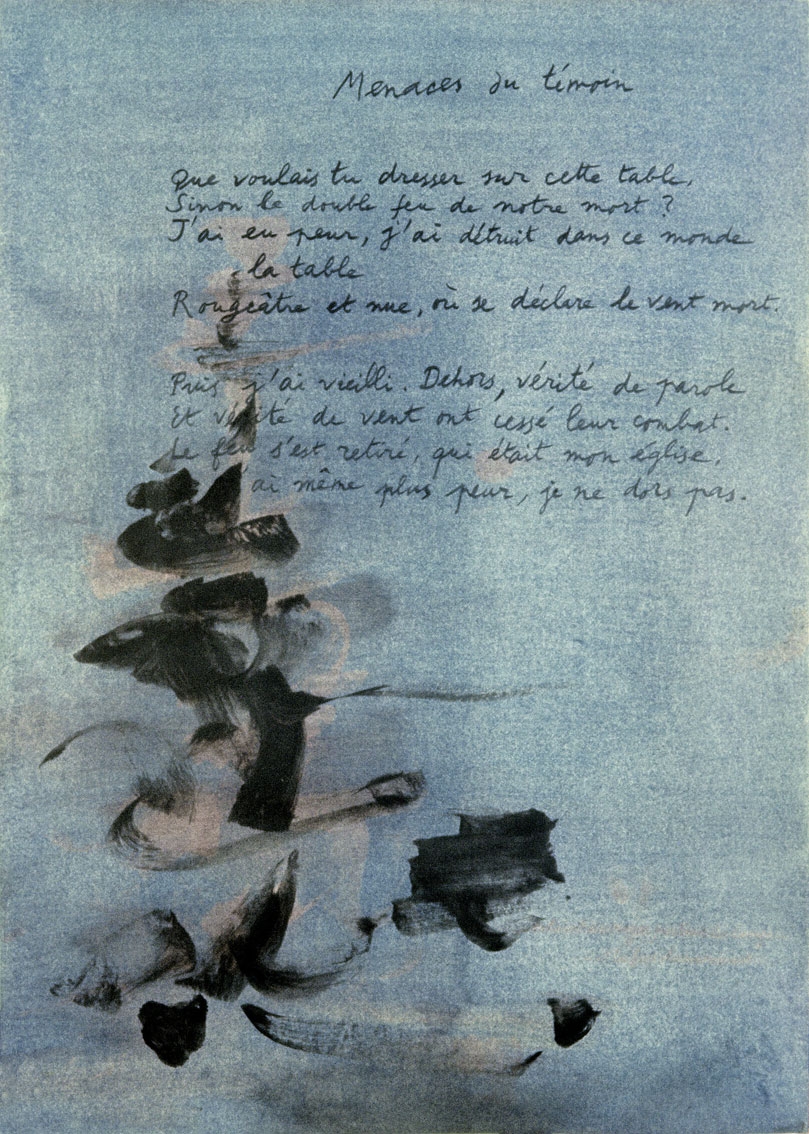 Menaces du témoin
Que voulais tu dresser sur cette table,
Sinon le double feu de notre mort ?
J'ai eu peur, j'ai détruit dans ce monde
la table
Rougeâtre et nue, où se déclare le vent mort.
Puis j'ai vieilli. Dehors, vérité de parole
Et vérité de vent ont cessé leur combat.
Le feu s'est retiré, qui était mon église,
ai même plus peur, je ne dors pas.